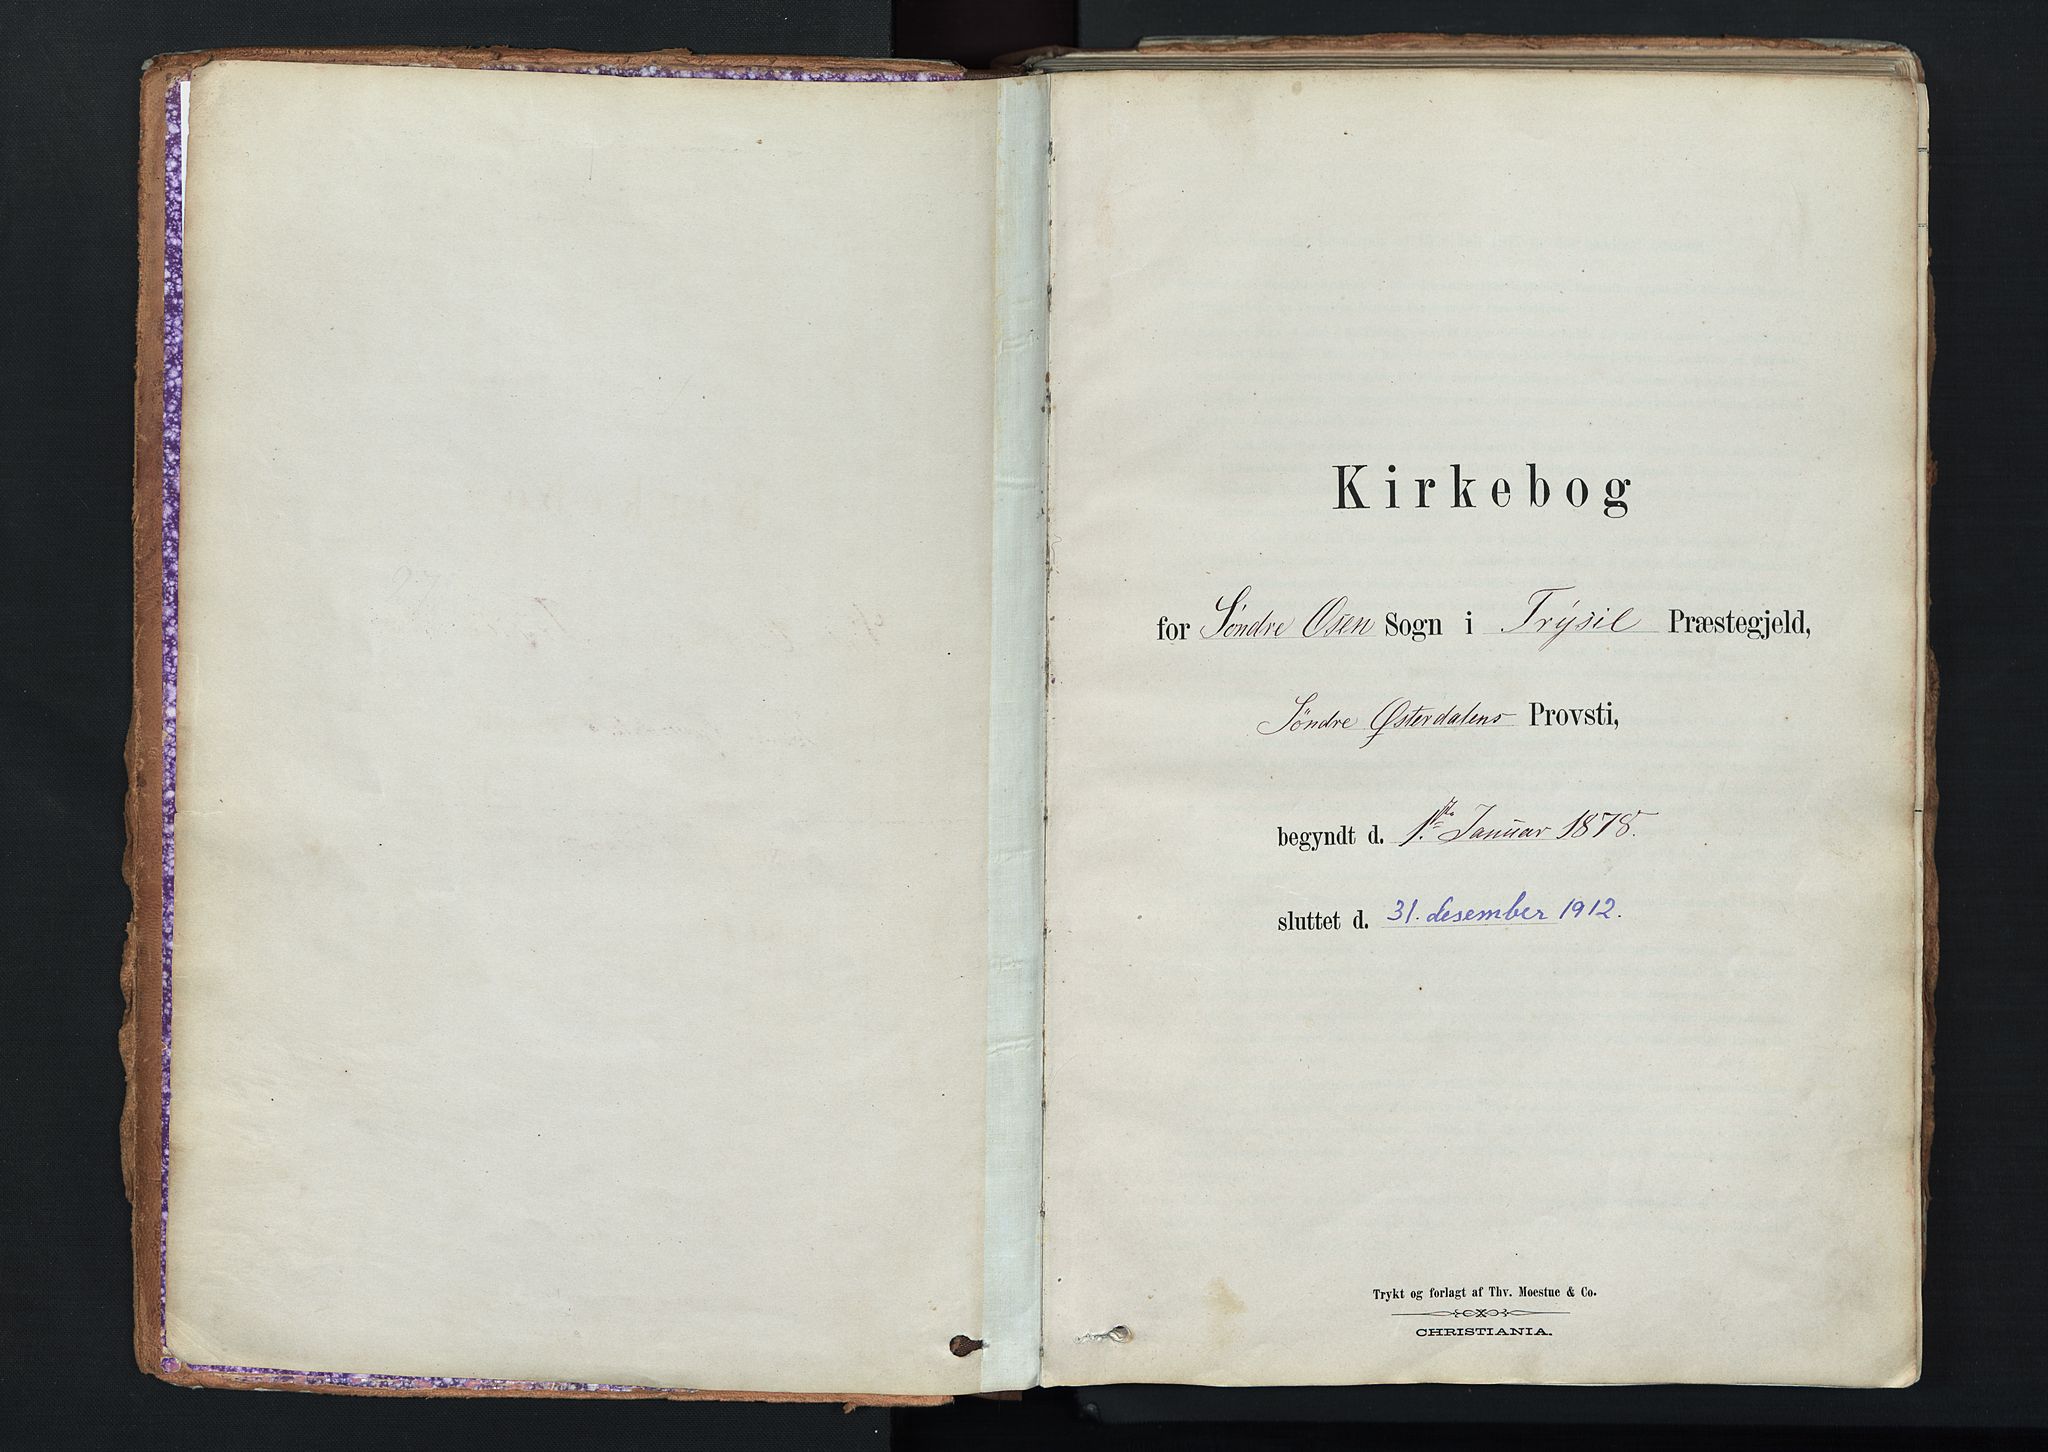 Kirkebog
for Søndre Osen Sogn i Trysil Præstegjeld,
Søndre Østerdalens Provsti,
begyndt d. 1ste Januar 1878.
sluttet d. 31. desember 1912.
Trykt og forlagt af Thv. Moestue & Co.
CHRISTIANIA.